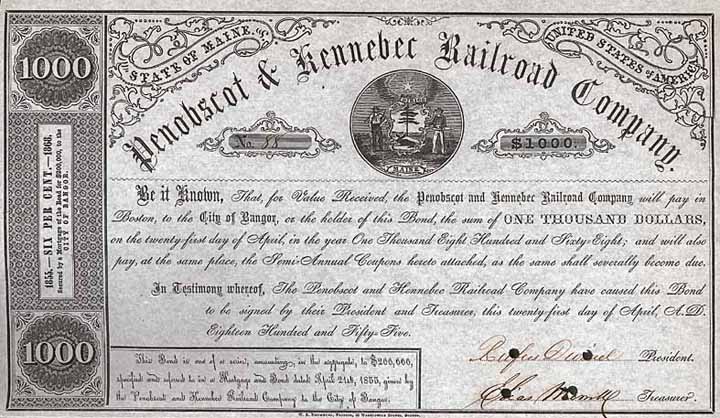 STATE OF MAINE.
UNITED STATES OF AMERICA
Penobscot & Kennebec Railroad Company.
1000
No. 88
$1000.
MAINE
1855.—SIX PER CENT.—1868.
Secured by a Mortgage of the Road for $200,000, to the
CITY OF BANGOR.
Be it Known, That, for Value Received, the Penobscot and Kennebec Railroad Company will pay in
Boston, to the City of Bangor, or the holder of this Bond, the sum of ONE THOUSAND DOLLARS,
on the twenty-first day of April, in the year One Thousand Eight Hundred and Sixty-Eight; and will also
pay, at the same place, the Semi-Annual Coupons hereto attached, as the same shall severally become due.
In Testimony whereof, The Penobscot and Kennebec Railroad Company have caused this Bond
to be signed by their President and Treasurer, this twenty-first day of April, A.D.
Eighteen Hundred and Fifty-Five.
1000
This Bond is one of a series, amounting, in the aggregate, to $200,000,
specified and referred to in a Mortgage and Bond dated April 21st, 1855, given by
the Penobscot and Kennebec Railroad Company to the City of Bangor.
Rufus Dwinel President.
Treasurer.